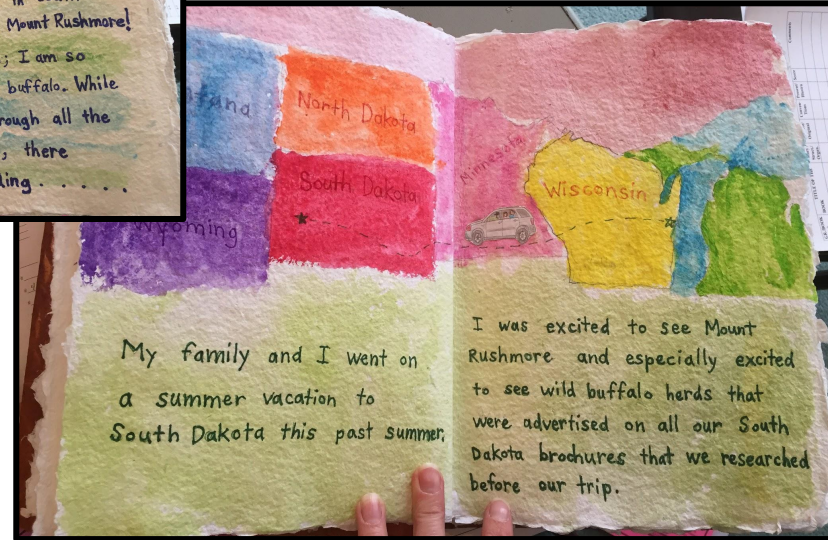 Mount Rushmore!
; I am so
buffalo. While
all the
, there
North Dakota
South Dakota
Wyoming
Minnesota
Wisconsin
My family and I went on
a summer vacation to
South Dakota this past summer.
I was excited to see Mount
Rushmore and especially excited
to see wild buffalo herds that
were advertised on all our South
Dakota brochures that we researched
before our trip.